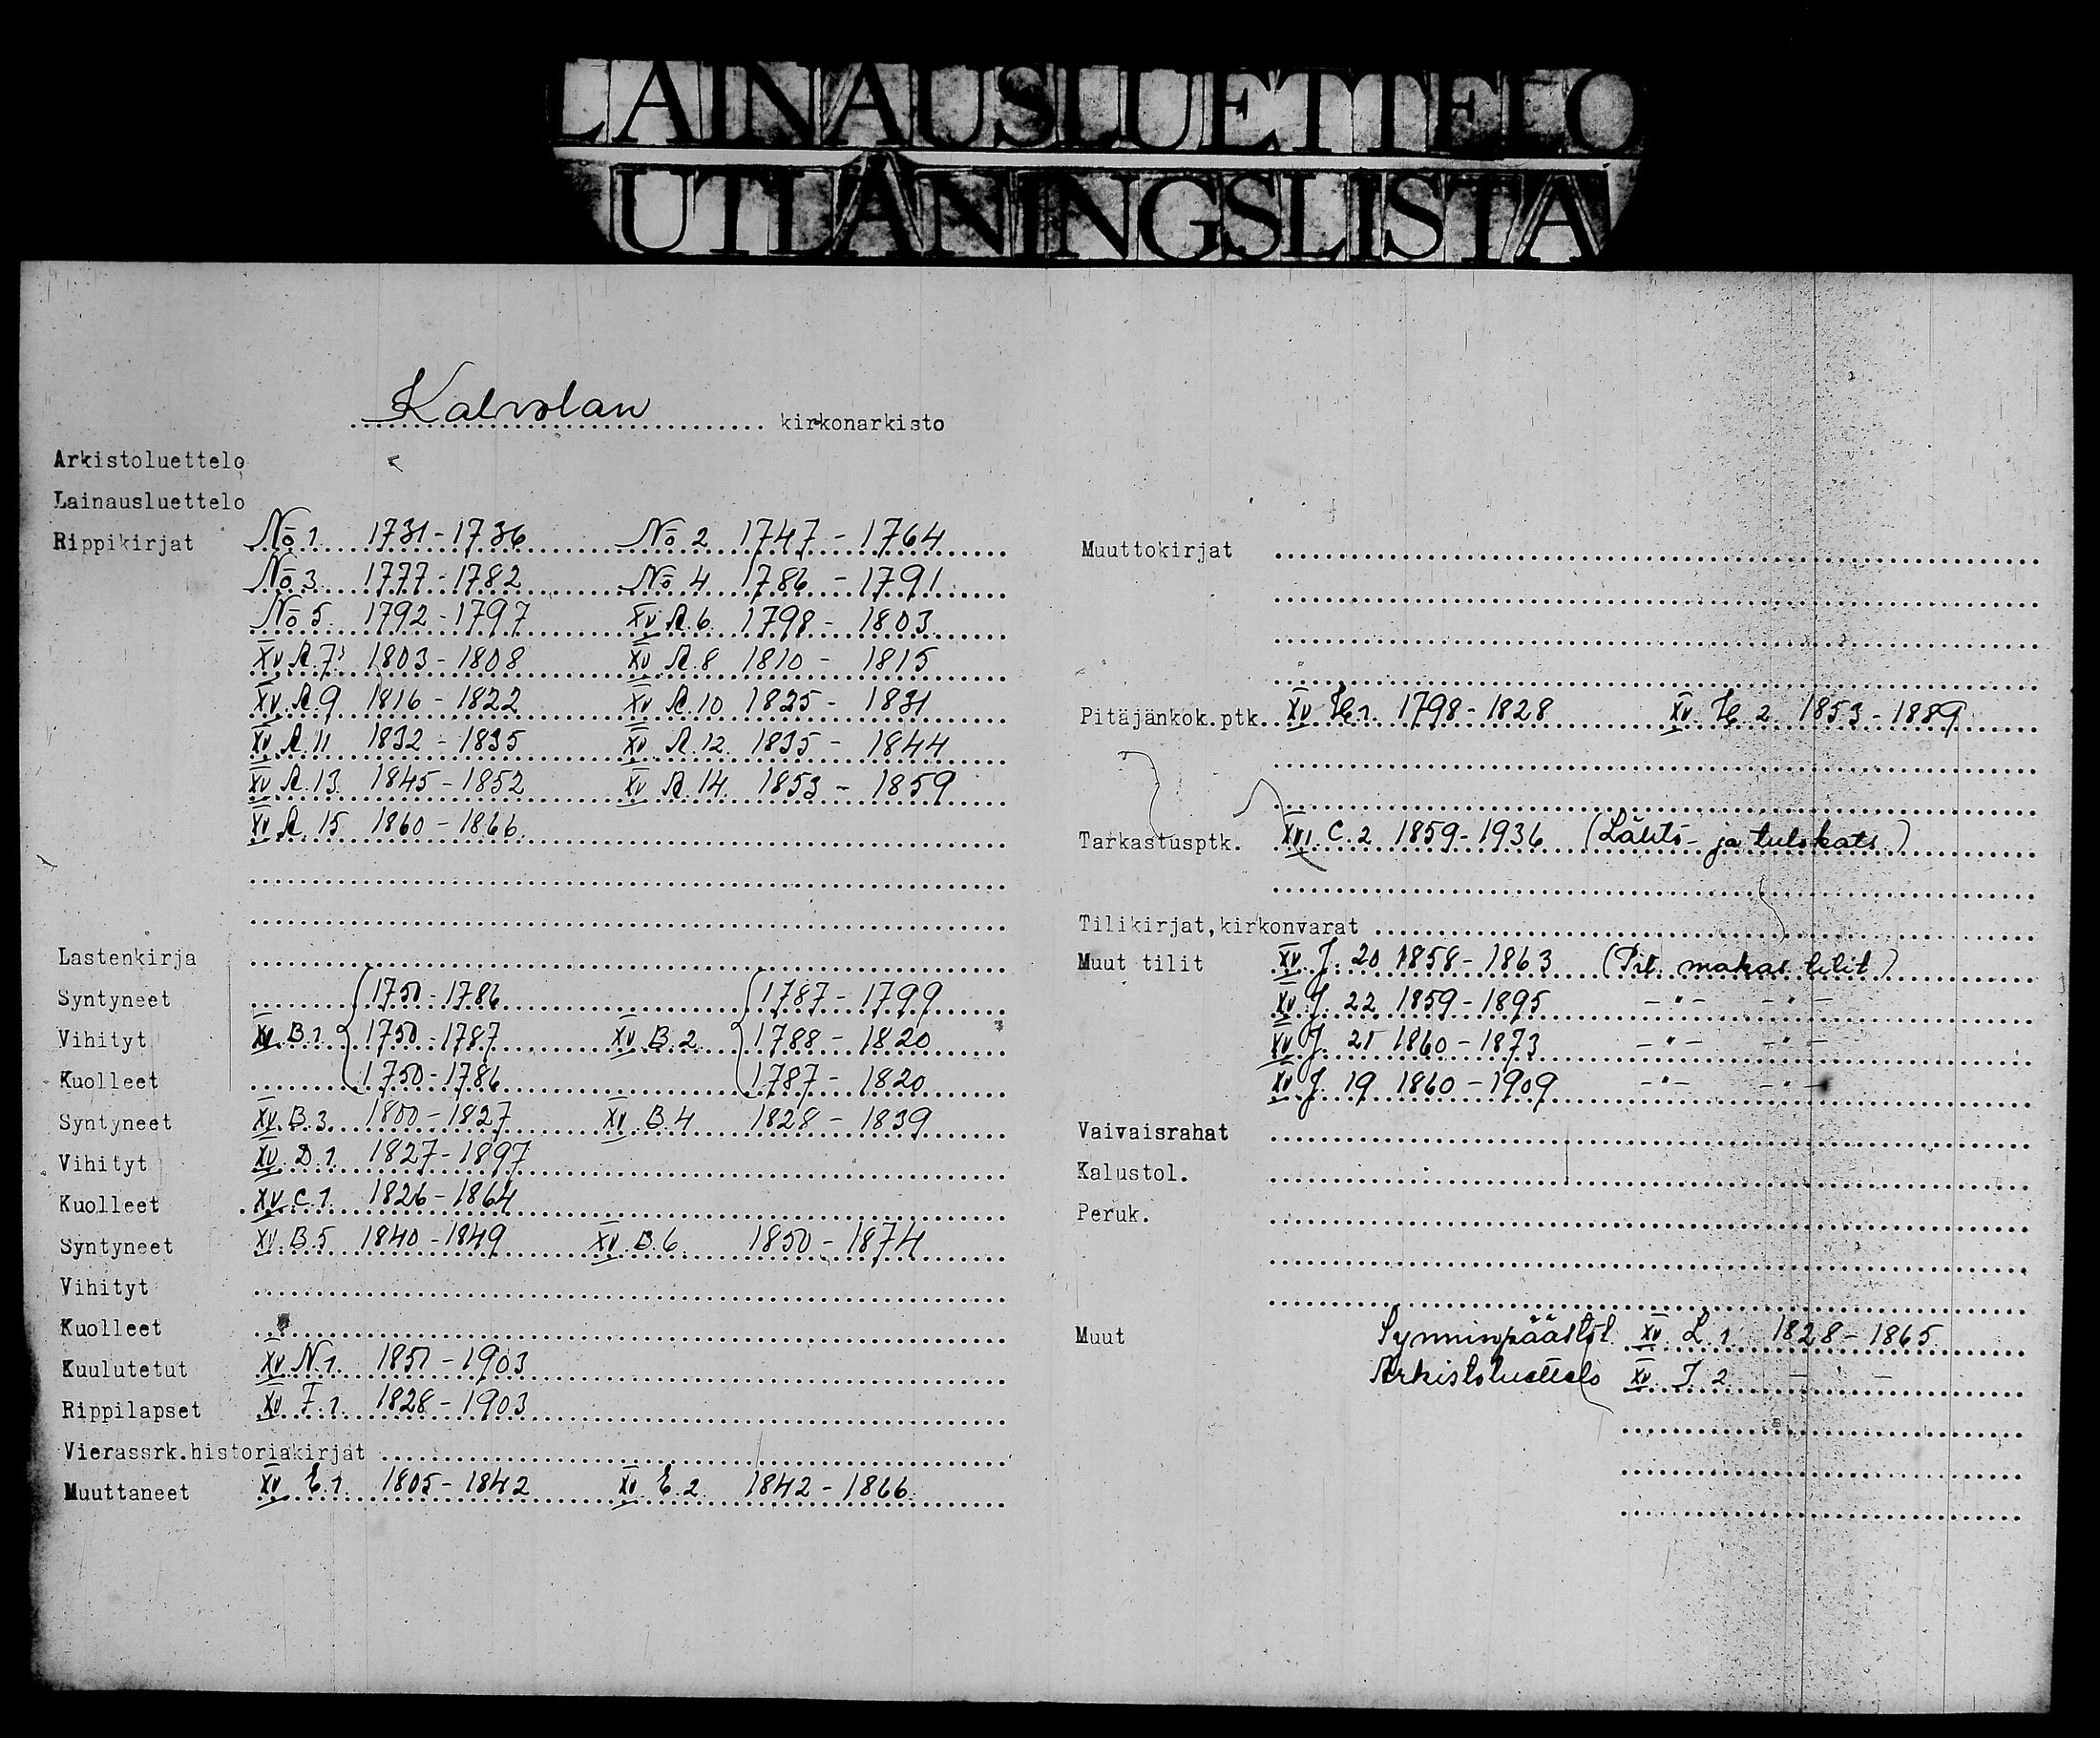 LAINAUSLUETTELO
UTLÅNINGSLISTA
Kalvolan kirkonarkisto
Arkistoluettelo
Lainausluettelo
Rippikirjat No 1 1731-1736 No 2 1747-1764
No 3 1777-1782 No 4 1786-1791
No 5 1792-1797 XV A.6. 1798-1803
XV A.7. 1803-1808 XV A.8 1810-1815
XV A.9 1816-1822 XV A.10 1825-1831
XV A.11 1832-1835 XV A.12. 1835-1844
XV A.13. 1845-1852 XV A.14. 1853-1859
XV A.15 1860-1866.
Lastenkirja
Syntyneet 1750-1786 1787-1799
Vihityt XV B.1. 1750-1787 XV B.2. 1788-1820
Kuolleet 1750-1786 1787-1820
Syntyneet XV B.3. 1800-1827 XV B.4 1828-1839
Vihityt XV D.1. 1827-1897
Kuolleet XV C.1. 1826-1864
Syntyneet XV B.5 1840-1849 XV B.6. 1850-1874
Vihityt
Kuolleet
Kuulutetut XV N.1. 1851-1903
Rippilapset XV F.1. 1828-1903
Vierassrk.historiakirjat
Muuttaneet XV E.1. 1805-1842 XV E.2. 1842-1866.
Muuttokirjat
Pitäjänkok.ptk. XV 1. 1798-1828 XV 2. 1853-1889
Tarkastusptk. XVI C.2 1859-1936 (Lähtö- ja tulokats.)
Tilikirjat,kirkonvarat
Muut tilit XV J. 20 1858-1863 (Pit. makas. tilit)
XV J. 22 1859-1895 -"- -"-
XV J. 21 1860-1873 -"- -"-
XV J. 19 1860-1909 -"- -"-
Vaivaisrahat
Kalustol.
Peruk.
Muut Synninpäästöl. XV L.1. 1828-1865.
Arkistoluettelo XV J 2 - -